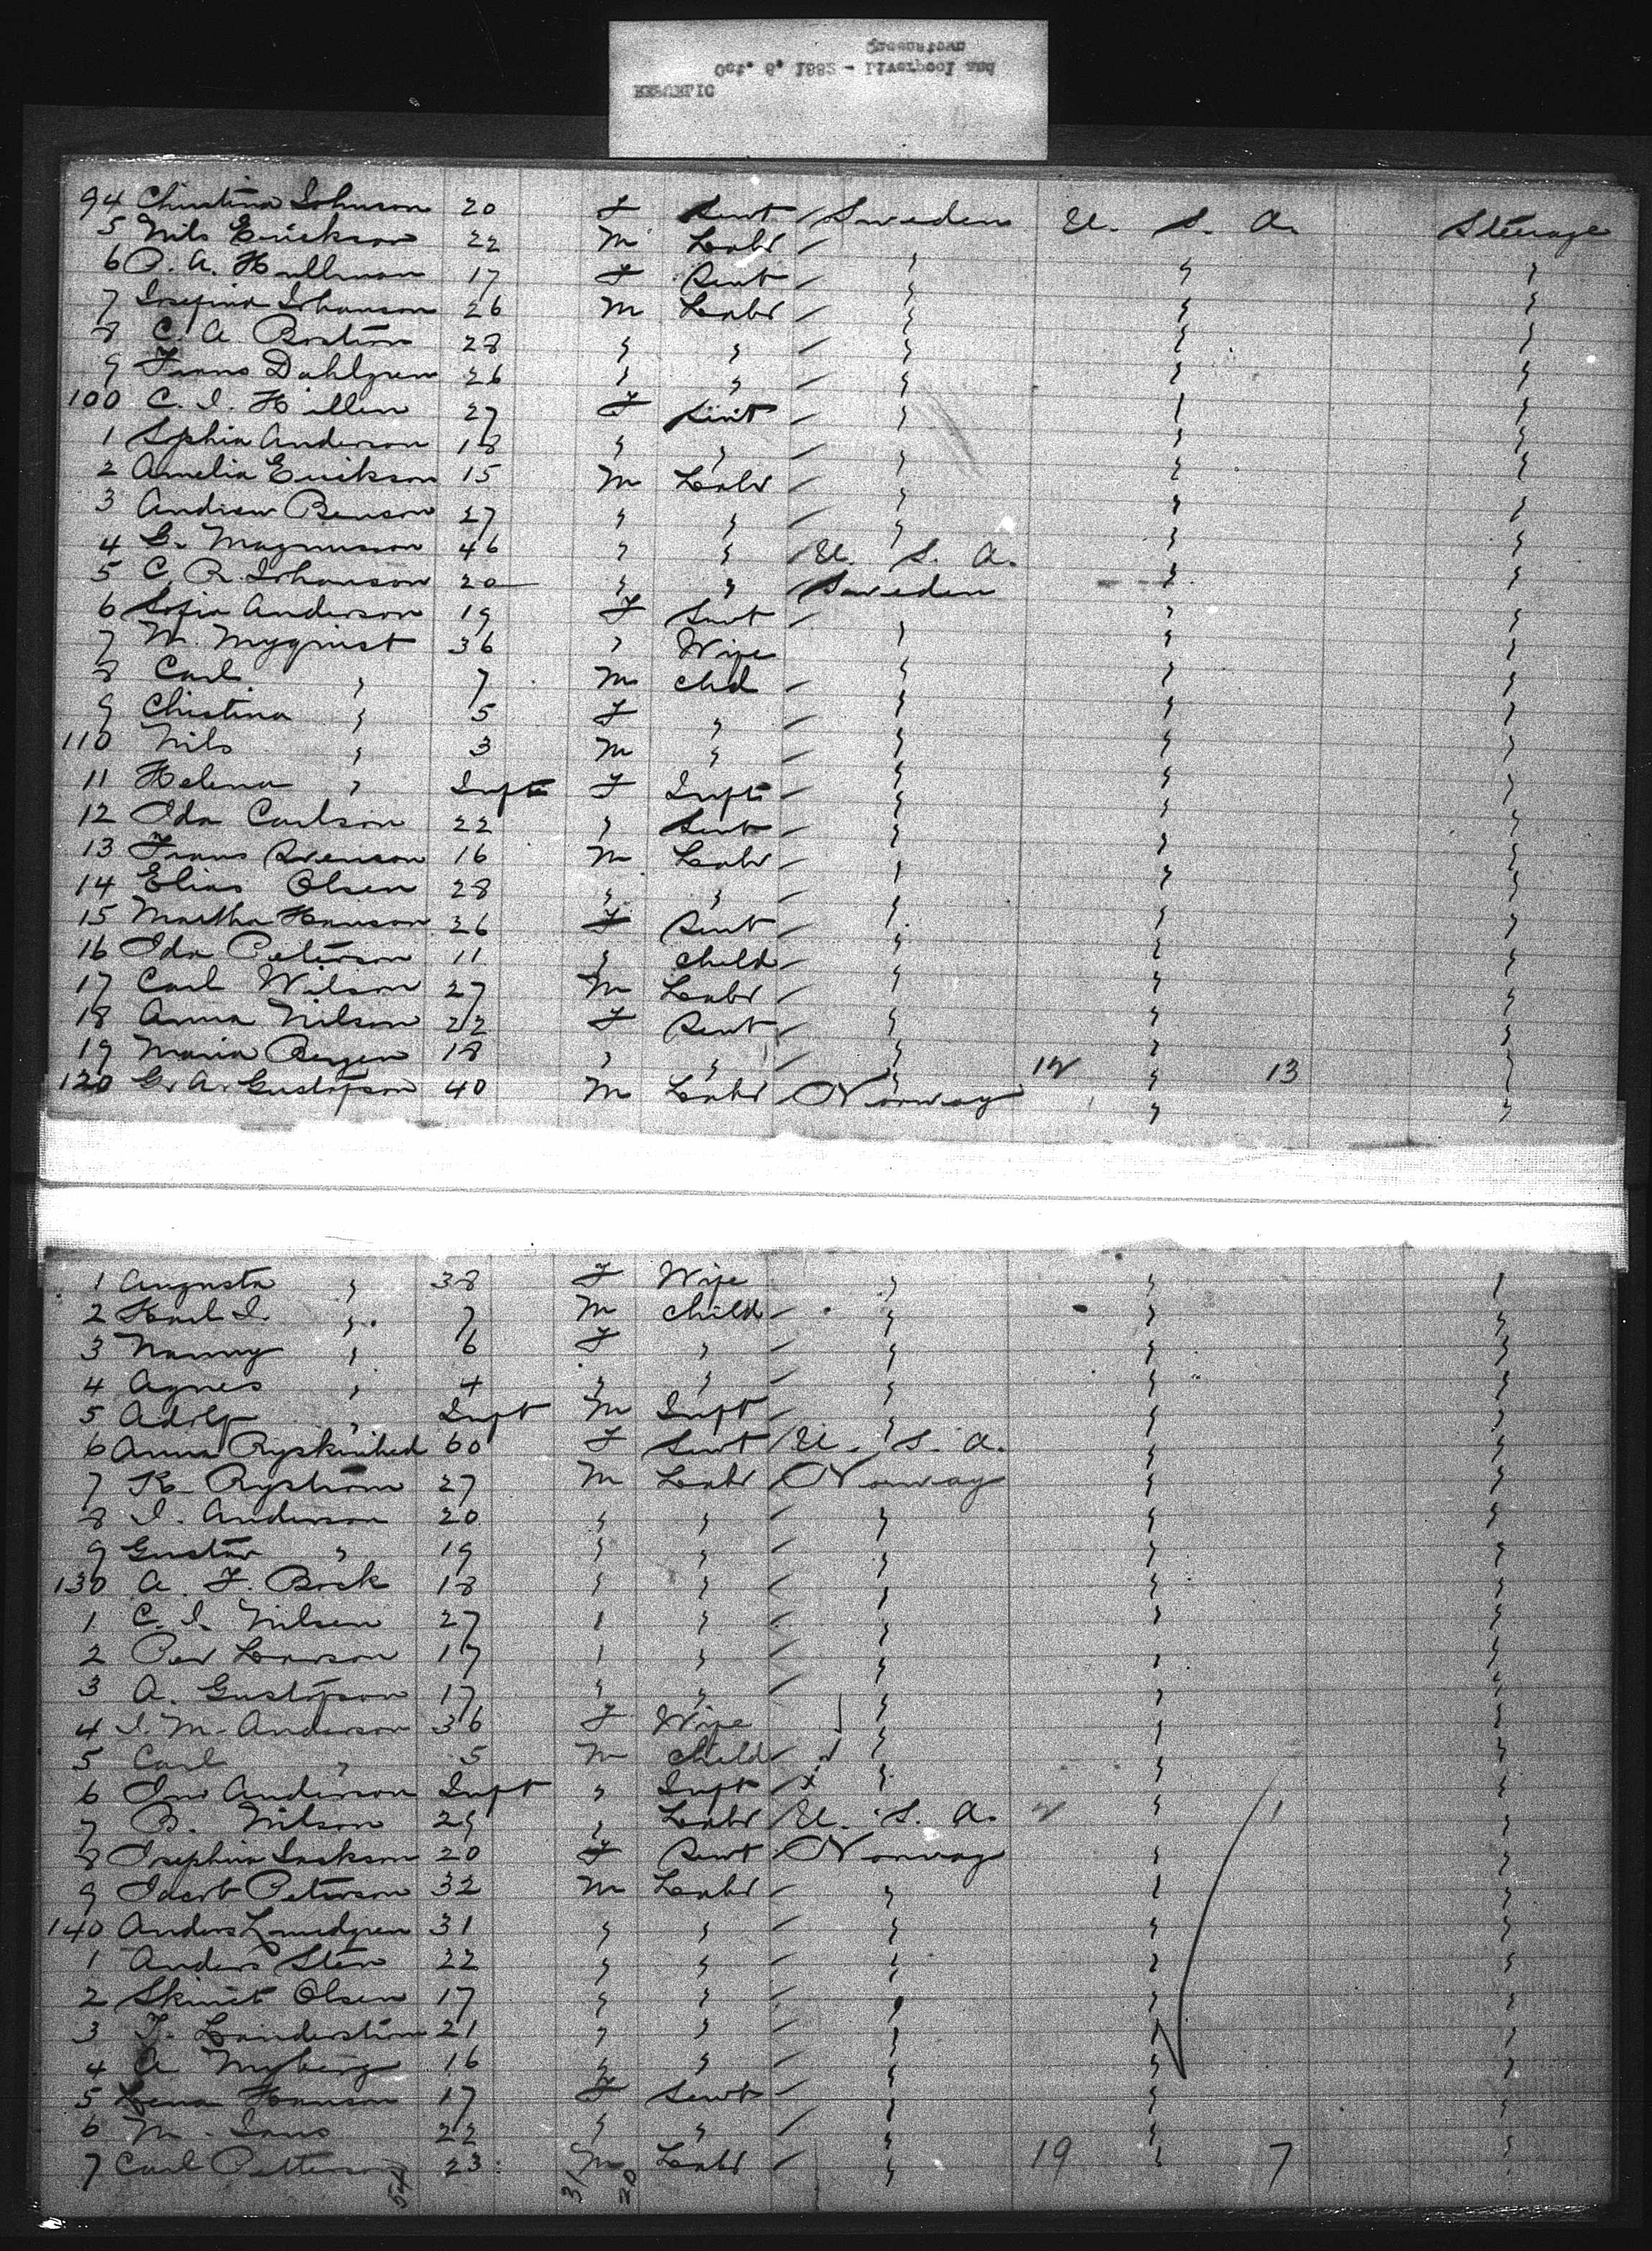 REPUBLIC
Oct. 9, 1883 - Liverpool and
Queenstown
94 Christina Johnson 20 F Servt Sweden U. S. A. Steerage
5 Nils Erickson 22 M Labr " " "
6 A. Hullman 17 F Servt " " "
7 Josefina Johanson 26 M Labr " " "
8 C. A. Boström 28 " " " " "
9 Frans Dahlgren 26 " " " " "
100 C. J. Hillen 27 F Servt " " "
1 Sophia Anderson 18 " " " " "
2 Amelia Erickson 15 M Labr " " "
3 Andrew Benson 27 " " " " "
4 G. Magnusson 46 " " U. S. A. " "
5 C. R. Johanson 20 " " Sweden " "
6 Sofia Anderson 19 F Servt " " "
7 M. Nyqvist 36 " Wife " " "
8 Carl " 7 M chd " " "
9 Christina " 5 F " " " "
110 Nils " 3 M " " " "
11 Helena " Inft F Inft " " "
12 Ida Carlson 22 " Servt " " "
13 Frans Svenson 16 M Labr " " "
14 Elias Olsen 28 " " " " "
15 Martha Hanson 26 F Servt " " "
16 Ida Peterson 11 " child " " "
17 Carl Wilson 27 M Labr " " "
18 Anna Nilson 22 F Servt " " "
19 Maria Bergen 18 " " " 12 " 13 "
120 G. A. Gustafson 40 M Labr Norway " "
1 Augusta " 38 F Wife " " "
2 Karl J. " 7 M child " " "
3 Nanny " 6 F " " " "
4 Agnes " 4 " " " " "
5 Adolf " Inft M Inft " " "
6 Anna 60 F Servt U. S. A. " "
7 K. Ryström 27 M Labr Norway " "
8 J. Anderson 20 " " " " "
9 Gustav " 19 " " " " "
130 A. F. Bock 18 " " " " "
1 C. J. Nilsen 27 " " " " "
2 Per Larson 17 " " " " "
3 A. Gustafson 17 " " " " "
4 J. M. Anderson 36 F Wife " " "
5 Carl " 5 M child " " "
6 Anderson Inft " Inft x " " "
7 B. Nilson 29 " Labr U. S. A. " 1 "
8 Josephina Jackson 20 F Servt Norway " "
9 Jacob Peterson 32 M Labr " " "
140 Anders Lundgren 31 " " " " "
1 Anders Sten 22 " " " " "
2 Olsen 17 " " " " "
3 21 " " " " "
4 A Nyberg 16 " " " " "
5 Lena Hanson 17 F Servt " " "
6 M. 22 " " " " "
7 Carl Petterson 23 M Labr " 19 " 7
54 31 20